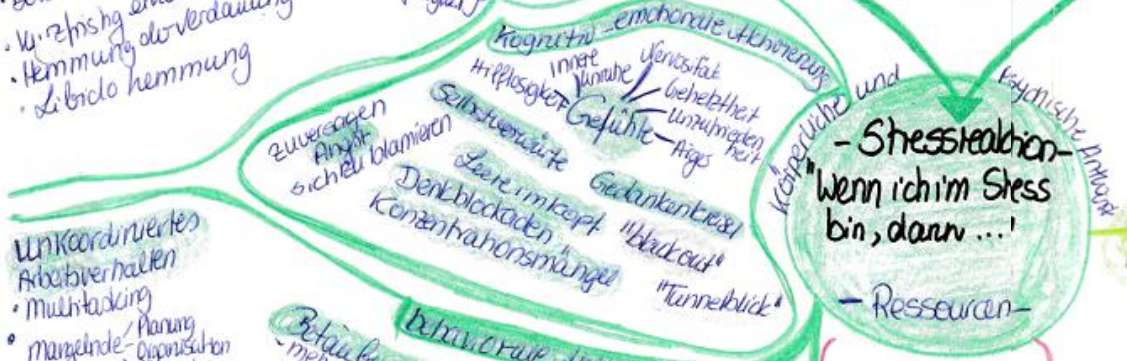 Hemmung der Verdauung
· Libido hemmung
Kognitiv-emotionale Aktivierung
Hilflosigkeit
innere
Unruhe
Nervosität
Gehetztheit
Unzufrieden
heit
Gefühle
zu versagen
Angst
sich zu blamieren
Selbstvorwürfe
Leere im Kopf
Denkblockaden
Konzentrationsmängel
Gedankenkreisel
"blackout"
"Tunnelblick"
Körperliche und
Psychische Antwort
- Stressreaktion-
"Wenn ich im Stess
bin, dann ..."
- Ressourcen-
Unkoordiniertes
Arbeitsverhalten
· Multitasking
· mangelnde Planung
Organisation